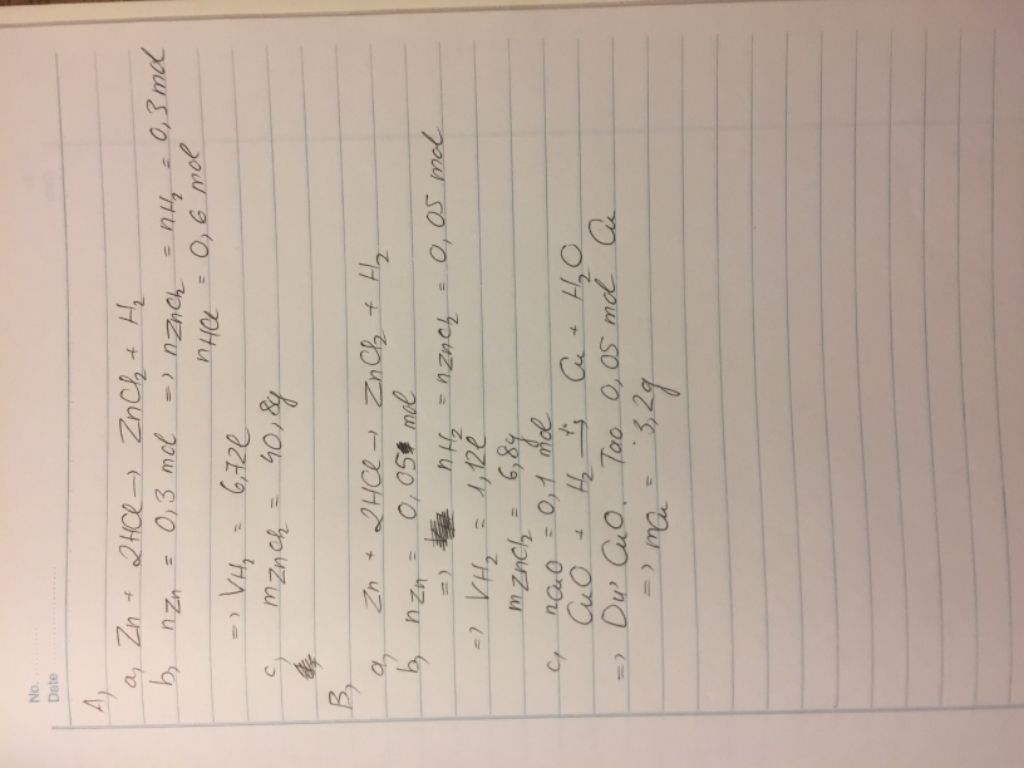 No. ........
Date ................
A,
a, Zn + 2HCl → ZnCl₂ + H₂
b, nZn = 0,3 mol => nZnCl₂ = nH₂ = 0,3 mol
nHCl = 0,6 mol
=> VH₂ = 6,72l
c, mZnCl₂ = 40,8g
B,
a, Zn + 2HCl → ZnCl₂ + H₂
b, nZn = 0,05 mol
=> nH₂ = nZnCl₂ = 0,05 mol
=> VH₂ = 1,12l
mZnCl₂ = 6,8g
c, nCuO = 0,1 mol
CuO + H₂ →t° Cu + H₂O
=> Dư CuO. Tạo 0,05 mol Cu
=> mCu = 3,2g